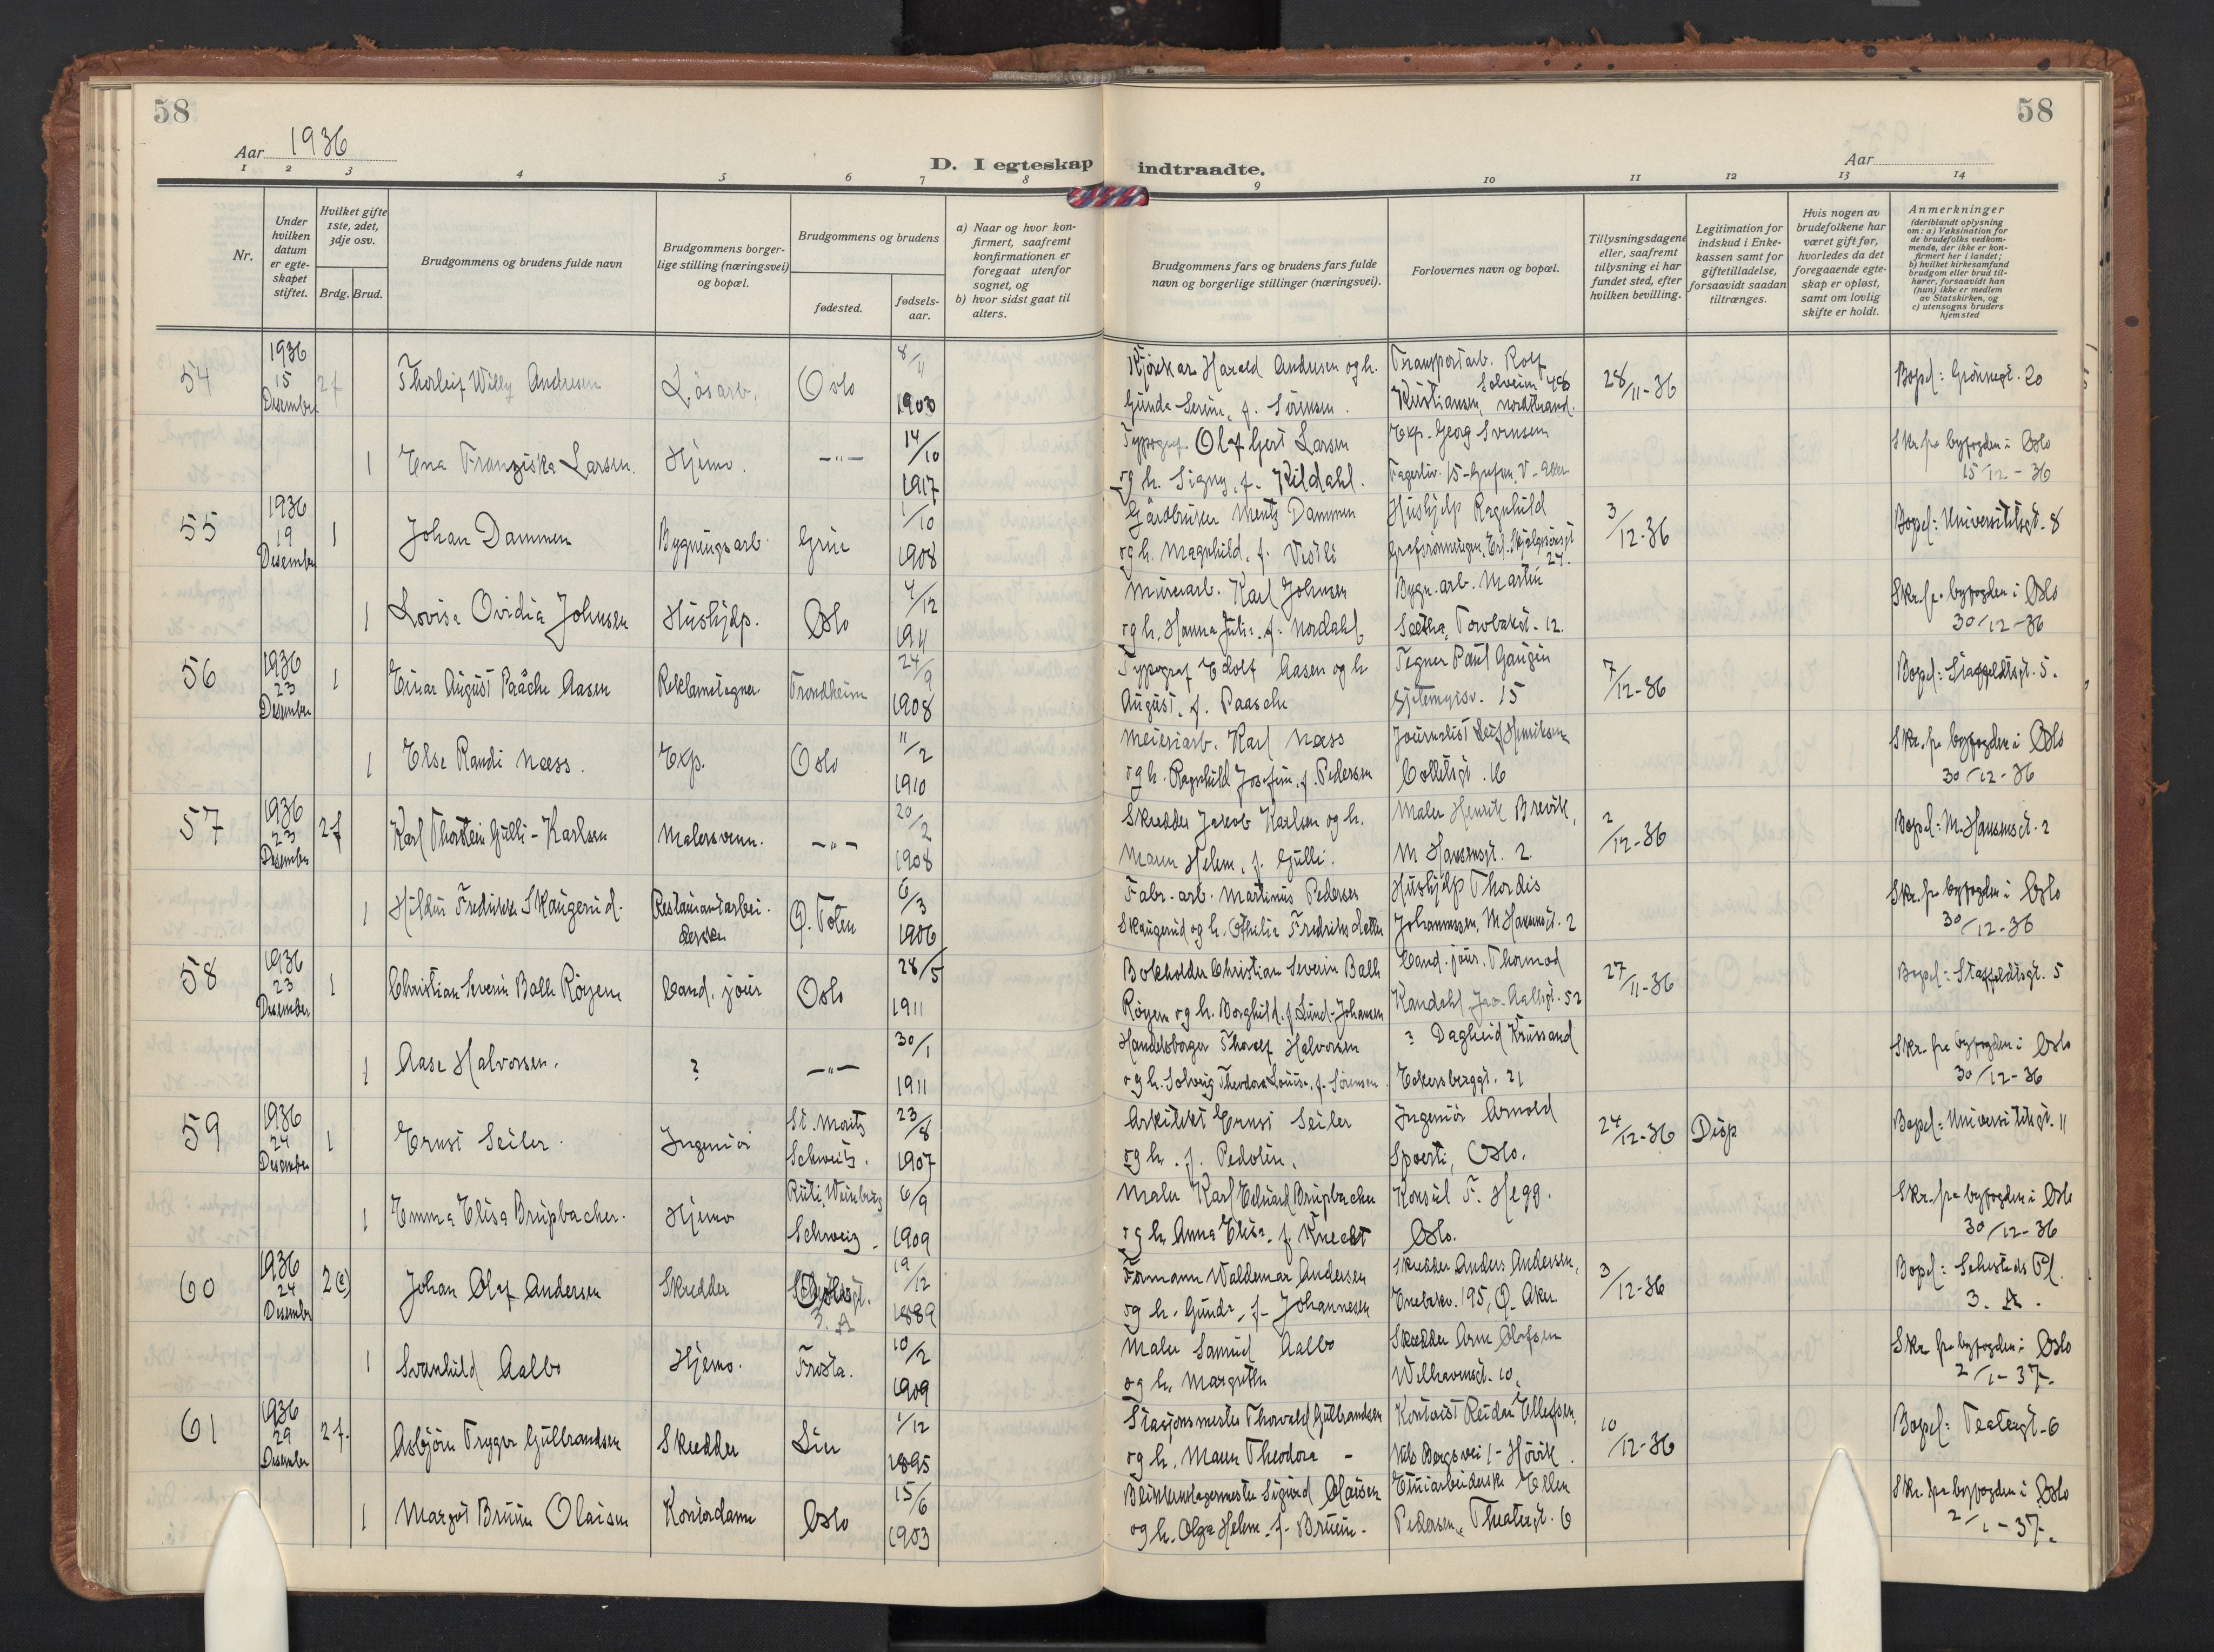 58
58
Aar 1936
D. I egteskap indtraadte.
Aar
1 2 3 4 5 6 7 8 9 10 11 12 13 14
Nr.
Under hvilken datum er egteskapet stiftet.
Hvilket gifte 1ste, 2det, 3dje osv.
Brdg. Brud.
Brudgommens og brudens fulde navn
Brudgommens borgerlige stilling (næringsvei) og bopæl.
Brudgommens og brudens
fødested.
fødselsaar.
a) Naar og hvor konfirmert, saafremt konfirmationen er foregaat utenfor sognet, og
b) hvor sidst gaat til alters.
Brudgommens fars og brudens fars fulde navn og borgerlige stillinger (næringsvei).
Forlovernes navn og bopæl.
Tillysningsdagene eller, saafremt tillysning ei har fundet sted, efter hvilken bevilling.
Legitimation for indskud i Enkekassen samt for giftetilladelse, forsaavidt saadan tiltrænges.
Hvis nogen av brudefolkene har været gift før, hvorledes da det foregaaende egteskap er opløst, samt om lovlig skifte er holdt.
Anmerkninger (deriblandt oplysning om: a) Vaksination for de brudefolks vedkommende, der ikke er konfirmert her i landet; b) hvilket kirkesamfund brudgom eller brud tilhører, forsaavidt han (hun) ikke er medlem av Statskirken, og c) utensogns bruders hjemsted
54 1936 15 Desember 2f Thorleif Willy Andresen Løsarb. Oslo 8/11 1903 Kjørekar Harald Andresen og h. Gunda Serine, f. Sørensen. Transportarb. Rolf Kristiansen, Solveien 48 Nordstrand. 28/11-36 Bopel: Grønnegt. 20
1 Ena Franziska Larsen. Hjemv. -"- 14/10 1917 Typograf Olaf Gert Larsen og h. Signy, f. Kildahl. Exp. Georg Svensen Fagerliv. 15 - Grefsen, V-Aker Skr. fra byfogden i Oslo 15/12-36
55 1936 19 Desember 1 Johan Dammen Bygningsarb. Grue 1/10 1908 Gårdbruker Mentz Dammen og h. Magnhild, f. Vestli Hushjelp Ragnhild Erl. Skjalgssønsgt 27. 3/12-36 Bopel: Universitetsgt. 8
1 Lovise Ovidia Johnsen Hushjelp. Oslo 4/12 1911 Murerarb. Karl Johnsen og h. Hanna Julie, f. Nordahl Bygn.arb. Martin Sætha, Torvbakkgt. 12. Skr. fra byfogden i Oslo 30/12-36
56 1936 23 Desember 1 Einar August Paasche Aasen Reklametegner Trondheim 24/9 1908 Typograf Edolf Aasen og h August, f. Paasche Tegner Paul Gauguin Gjetemyrsv. 15 7/12-36 Bopel: Staffeldtsgt. 5.
1 Else Randi Næss. Exp. Oslo 11/2 1910 Meieriarb. Karl Næss og h. Ragnhild Josefine, f. Pedersen Journalist Leif Henriksen Colletsgt. 16 Skr. fra byfogden i Oslo 30/12-36
57 1936 23 Desember 2f Karl Thorstein Gulli-Karlsen Malersvenn. -"- 20/2 1908 Skredder Jakob Karlsen og h. Maren Helene, f. Gulli. Maler Henrik Brevik, M Hansensgt. 2. 2/12-36 Bopel: M. Hansensgt. 2
1 Hildur Fredrikke Skaugerud. Restaurantarbeiderske Ø. Toten 6/3 1906 Fabr.-arb. Martinius Pedersen Skaugerud og h. Othilie Fredriksdatter Hushjelp Thordis Johannessen, M Hansensgt. 2 Skr. fra byfogden i Oslo 30/12-36
58 1936 23 Desember 1 Christian Severin Balle Røyem Cand. jour Oslo 28/5 1911 Bokholder Christian Severin Balle Røyem og h. Borghild, f. Lund-Johansen Cand. jour. Thormod Kandahl, Jac. Aallsgt. 52 27/11-36 Bopel: Staffeldtsgt. 5
1 Aase Halvorsen. ? -"- 30/1 1911 Handelsborger Thoralf Halvorsen og h. Solveig Theodora Louise, f. Sørensen ? Dagheid Krussand Eckersberggt. 21 Skr. fra byfogden i Oslo 30/12-36
59 1936 24 Desember 1 Ernst Seiler. Ingeniør St. Moritz Schweitz. 23/8 1907 Arkitekt Ernst Seiler og h. f. Pedolin. Ingeniør Arnold Spoerli, Oslo. 24/12-36 Disp Bopel: Universitetsgt. 11
1 Emma Elisa Brupbacher. Hjemv Rüti, Schweiz 6/9 1909 Maler Karl Eduard Brupbacher og h. Anna Elise, f. Knecht Konsul F. Hegg. Oslo. Skr. fra byfogden i Oslo 30/12-36
60 1936 24 Desember 2(e) Johan Olaf Andersen Skredder Oslo 3. A 19/12 1889 Formann Waldemar Andersen og h. Gunda, f. Johannesen Skredder Anders Andersen, Enebakv. 195, Ø. Aker 3/12-36 Bopel: Sehesteds Pl. 3. A.
1 Svanhild Aalbo Hjemv. Frosta. 10/2 1909 Maler Samuel Aalbo og h. Margrethe Skredder Arne Olafsen Welhavensgt. 10, Skr. fra byfogden i Oslo 2/1-37.
61 1936 29 Desember 2f. Asbjørn Trygve Gulbrandsen Skredder Lier 1/12 1895 Stasjonsmester Thorvald Gulbrandsen og h. Maren Theodora - Kontorist Reidar Ellefsen, Nils Bergsvei 1 - Høvik. 10/12-36 Bopel: Teatergt. 6
1 Margot Bruun Olaisen Kontordame Oslo 15/6 1903 Blikkenslagermester Sigurd Olaisen og h. Olga Helene, f. Bruun. Etuiarbeiderske Ellen Pedersen, Theatergt. 6 Skr. fra byfogden i Oslo 2/1-37.